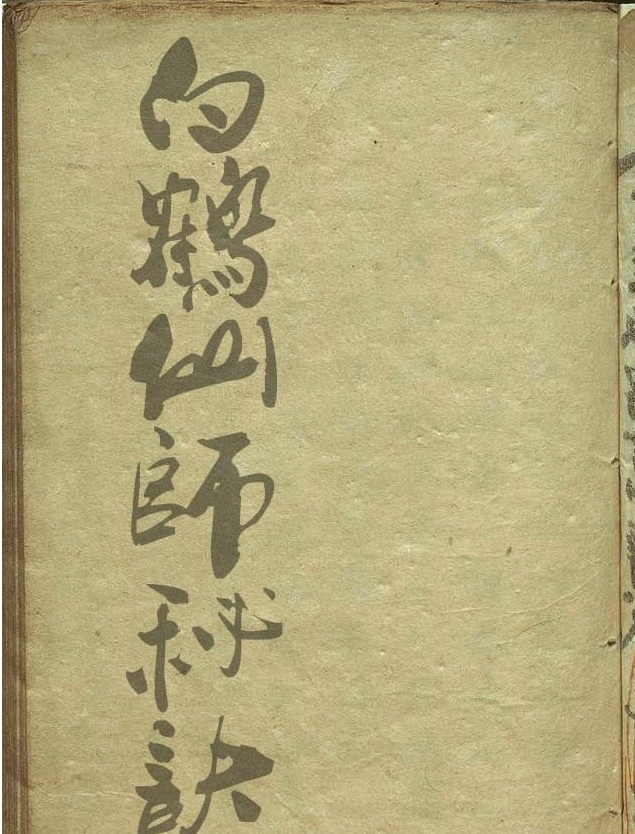 白鶴仙師秘訣